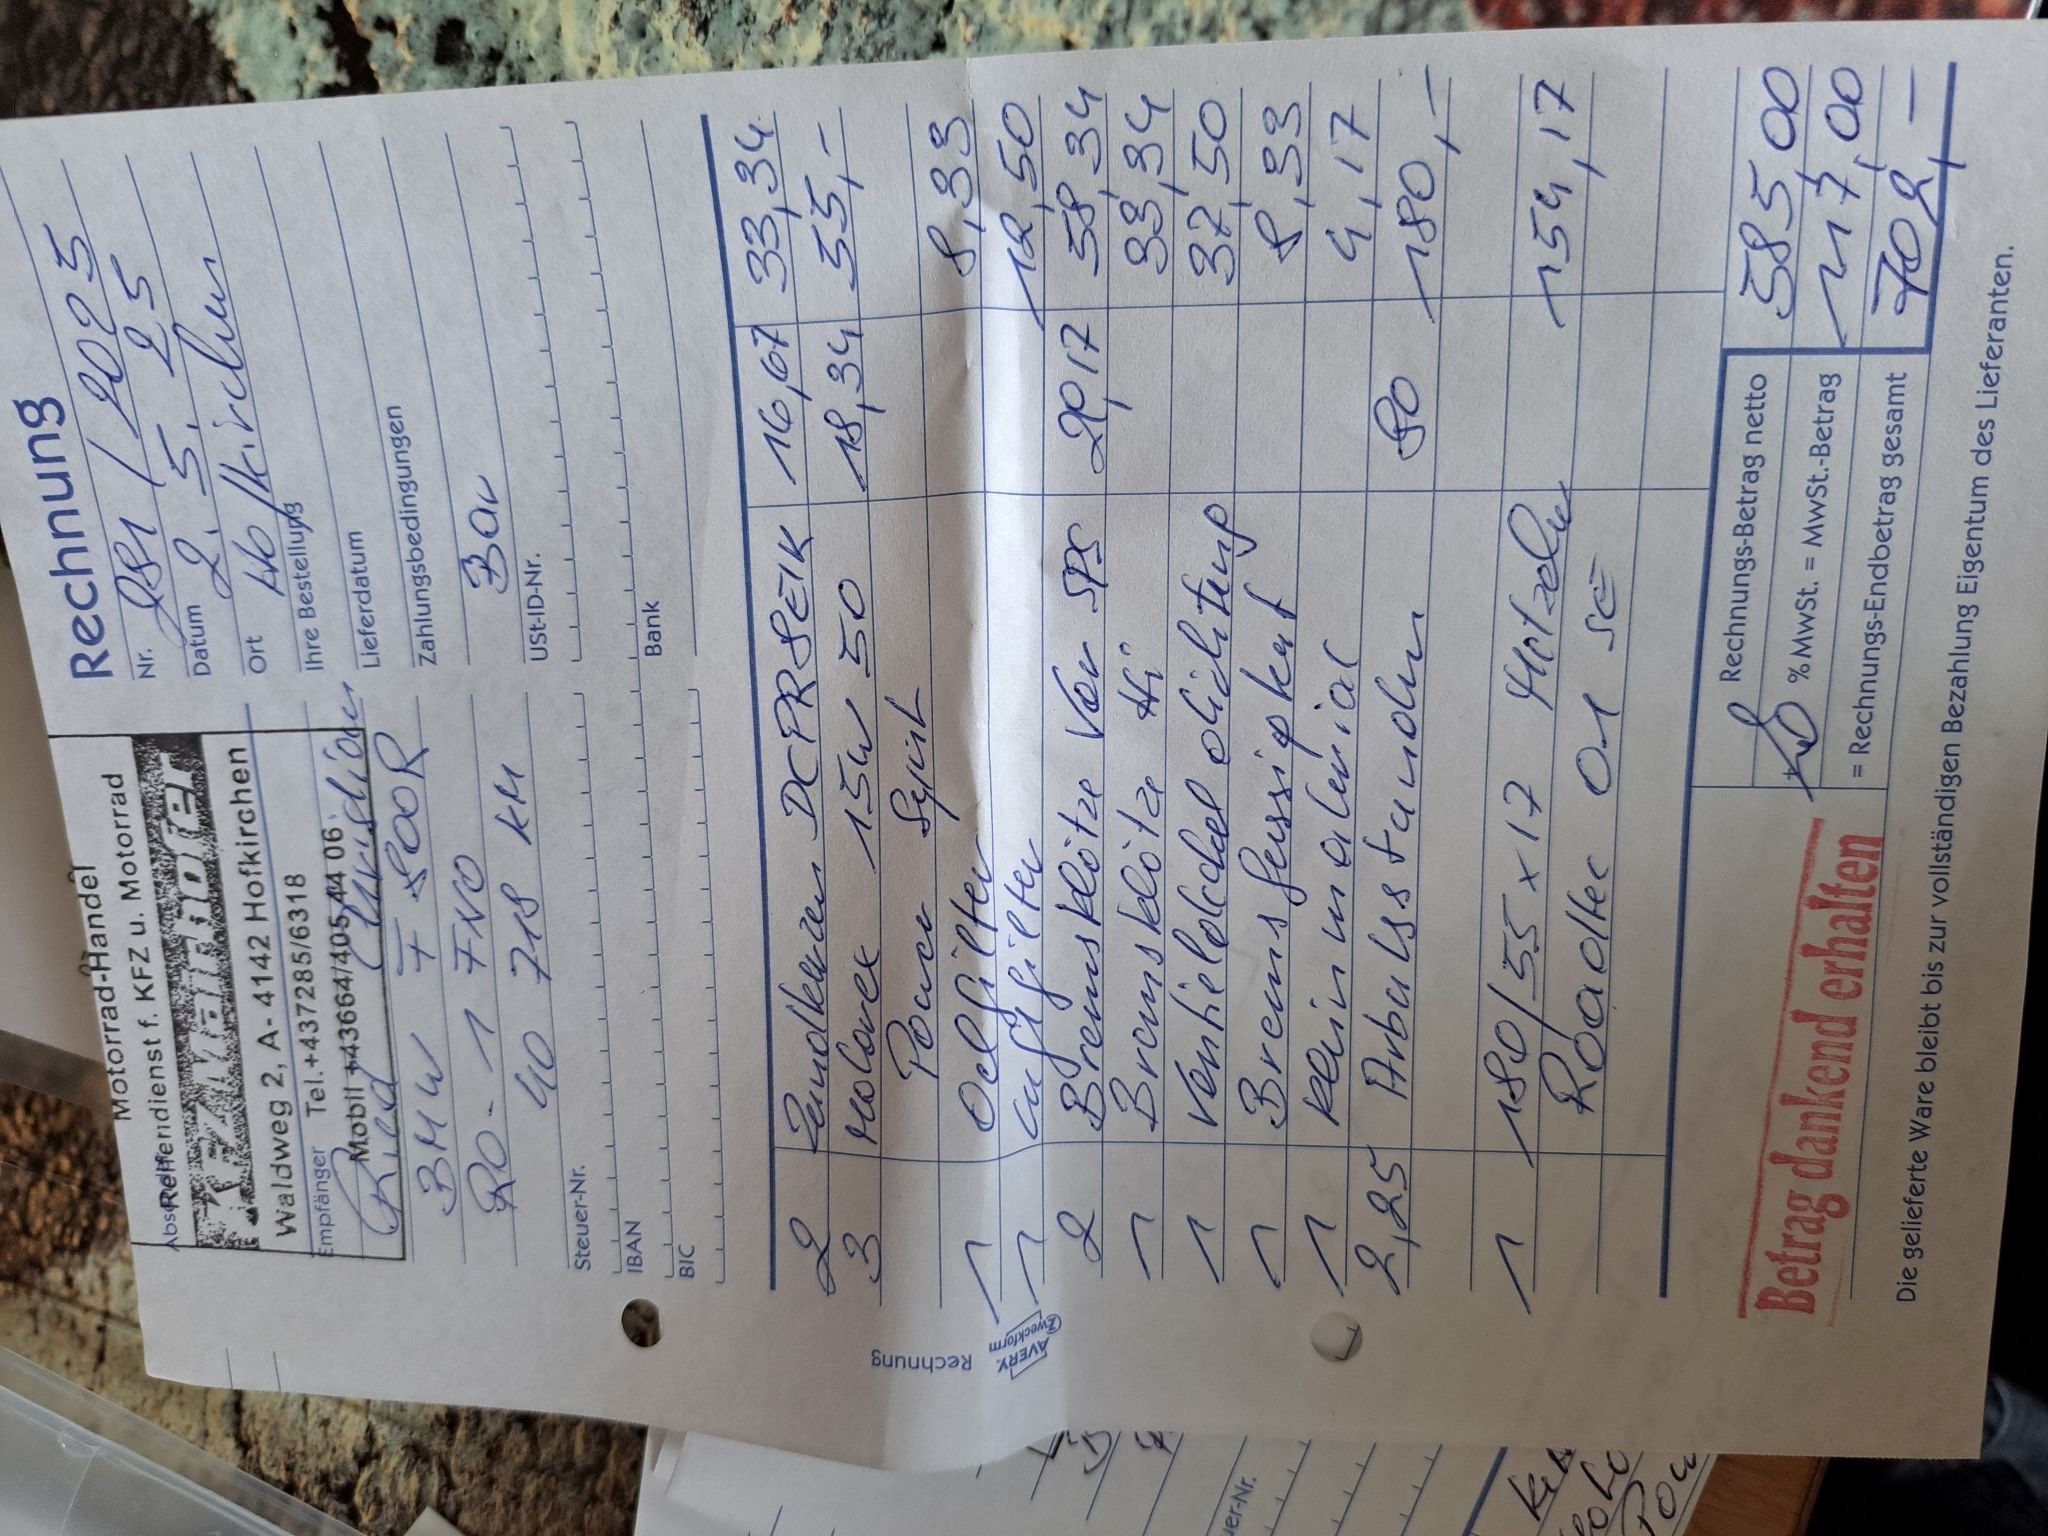 Rechnung
Motorrad-Handel
Reifendienst f. KFZ u. Motorrad
Waldweg 2, A- 4142 Hofkirchen
Tel.+437285/6318
Mobil +43664/405 44 06
Empfänger
Ried Christian
BMW F 800R
RO - 1 FNO
40 718 km
Nr. 281 / 2025
Datum 2. 5. 25
Ort Hofkirchen
Ihre Bestellung
Lieferdatum
Zahlungsbedingungen
Bar
USt-ID-Nr.
Steuer-Nr.
IBAN
BIC
Bank
2 Zündkerzen DCPR8EIK 16,67 33,34
3 Motorex 15W 50 18,34 55,-
Power Synt
1 Oelfilter 8,33
1 Luftfilter 12,50
2 Bremsklötze Vor 29,17 58,34
1 Bremsklötze Hi 33,34
1 Ventieldeckel dichtung 37,50
1 Bremsflüssigkeit 8,33
1 Kleinmaterial 4,17
2,25 Arbeitsstunden 80 180,-
1 180/55 x 17 Metzeler 154,17
Roadtec 01 SE
Rechnung
AVERY
Zweckform
Rechnungs-Betrag netto 585,00
+ 20 % MwSt. = MwSt.-Betrag 117,00
= Rechnungs-Endbetrag gesamt 702,-
Betrag dankend erhalten
Die gelieferte Ware bleibt bis zur vollständigen Bezahlung Eigentum des Lieferanten.